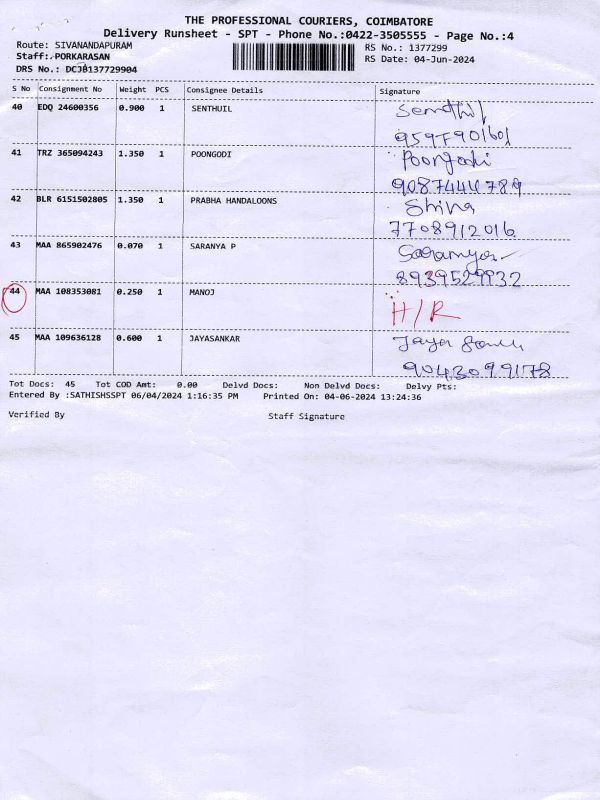 THE PROFESSIONAL COURIERS, COIMBATORE
Delivery Runsheet - SPT - Phone No.:0422-3505555 - Page No.:4
Route: SIVANANDAPURAM
RS No.: 1377299
Staff: PORKARASAN
RS Date: 04-Jun-2024
DRS No.: DCJB137729904
S No Consignment No Weight PCS Consignee Details Signature
40 EDQ 24600356 0.900 1 SENTHUIL Senthil
41 TRZ 365094243 1.350 1 POONGODI Poongodi
9087444789
42 BLR 6151502805 1.350 1 PRABHA HANDALOONS Shiva
7708912016
43 MAA 865902476 0.070 1 SARANYA P Saranya
8939529932
44 MAA 108353081 0.250 1 MANOJ H/R
45 MAA 109636128 0.600 1 JAYASANKAR Jaya
9043099178
Tot Docs: 45 Tot COD Amt: 0.00 Delvd Docs: Non Delvd Docs: Delvy Pts:
Entered By :SATHISHSSPT 06/04/2024 1:16:35 PM Printed On: 04-06-2024 13:24:36
Verified By Staff Signature